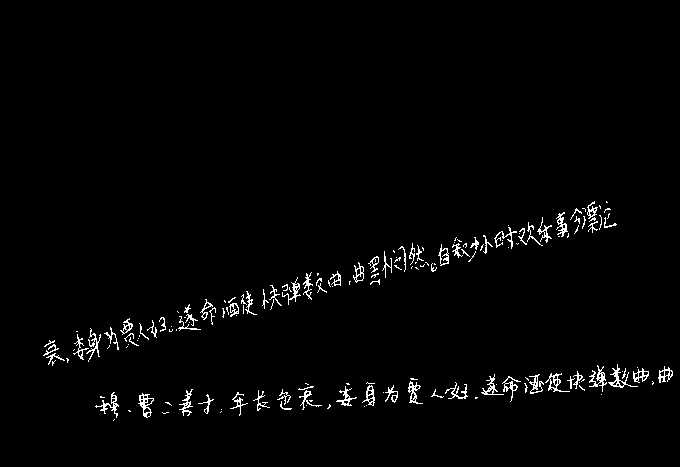 衰，委身为贾人妇。遂命酒使快弹数曲，曲罢悯然。自叙少小时欢乐事今漂沦
穆、曹二善才，年长色衰，委身为贾人妇。遂命酒使快弹数曲，曲